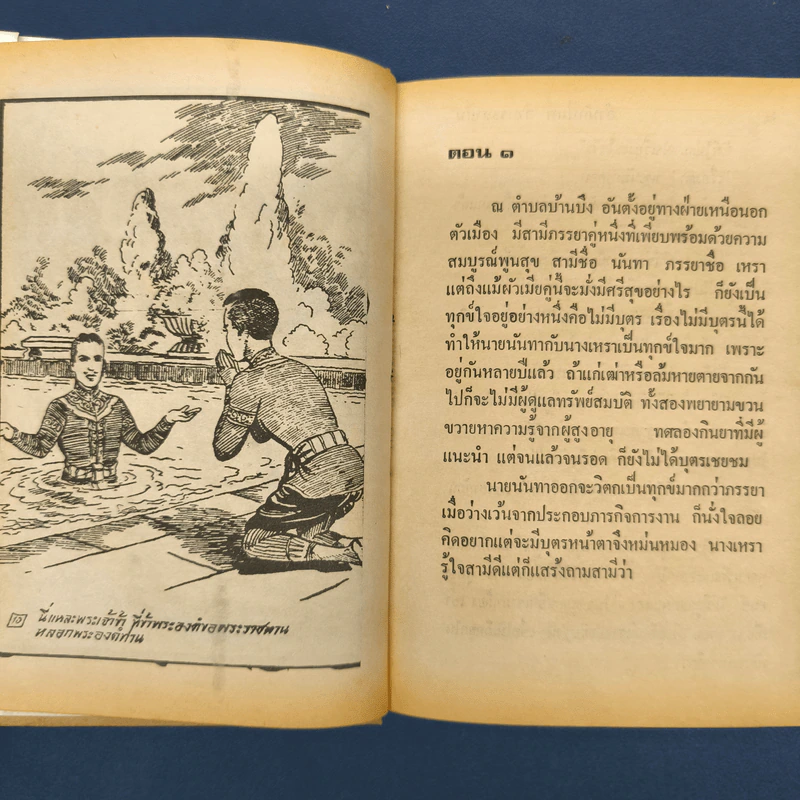 ๖
นี่แหละพระเจ้าข้า ที่ข้าพระองค์ขอพระราชทาน
หลอกพระองค์ท่าน
ตอน ๑
ณ ตำบลบ้านบึง อันตั้งอยู่ทางฝ่ายเหนือนอก
ตัวเมือง มีสามีภรรยาคู่หนึ่งที่เพียบพร้อมด้วยความ
สมบูรณ์พูนสุข สามีชื่อ นันทา ภรรยาชื่อ เหรา
แต่ถึงแม้ผัวเมียคู่นี้จะมั่งมีศรีสุขอย่างไร ก็ยังเป็น
ทุกข์ใจอยู่อย่างหนึ่งคือไม่มีบุตร เรื่องไม่มีบุตรนี้ได้
ทำให้นายนันทากับนางเหราเป็นทุกข์ใจมาก เพราะ
อยู่กันหลายปีแล้ว ถ้าแก่เฒ่าหรือล้มหายตายจากกัน
ไปก็จะไม่มีผู้ดูแลทรัพย์สมบัติ ทั้งสองพยายามขวน
ขวายหาความรู้จากผู้สูงอายุ ทดลองกินยาที่มีผู้
แนะนำ แต่จนแล้วจนรอด ก็ยังไม่ได้บุตรเชยชม
นายนันทาออกจะวิตกเป็นทุกข์มากกว่าภรรยา
เมื่อว่างเว้นจากประกอบภารกิจการงาน ก็นั่งใจลอย
คิดอยากแต่จะมีบุตรหน้าตาจึงหม่นหมอง นางเหรา
รู้ใจสามีดีแต่ก็แสร้งถามสามีว่า